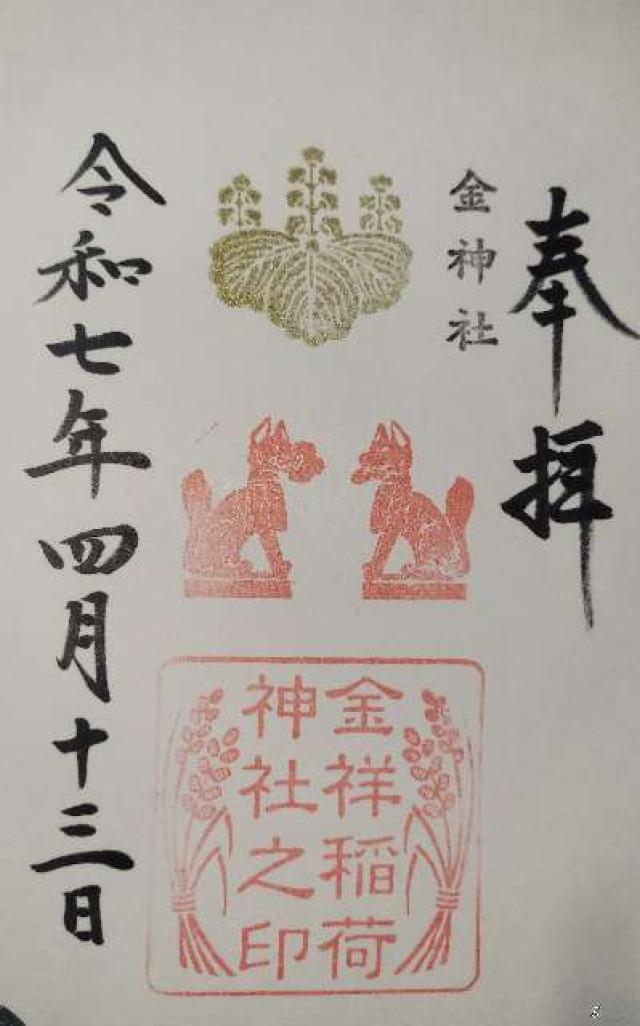 奉拝
金神社
金祥稲荷
神社之印
令和七年四月十三日